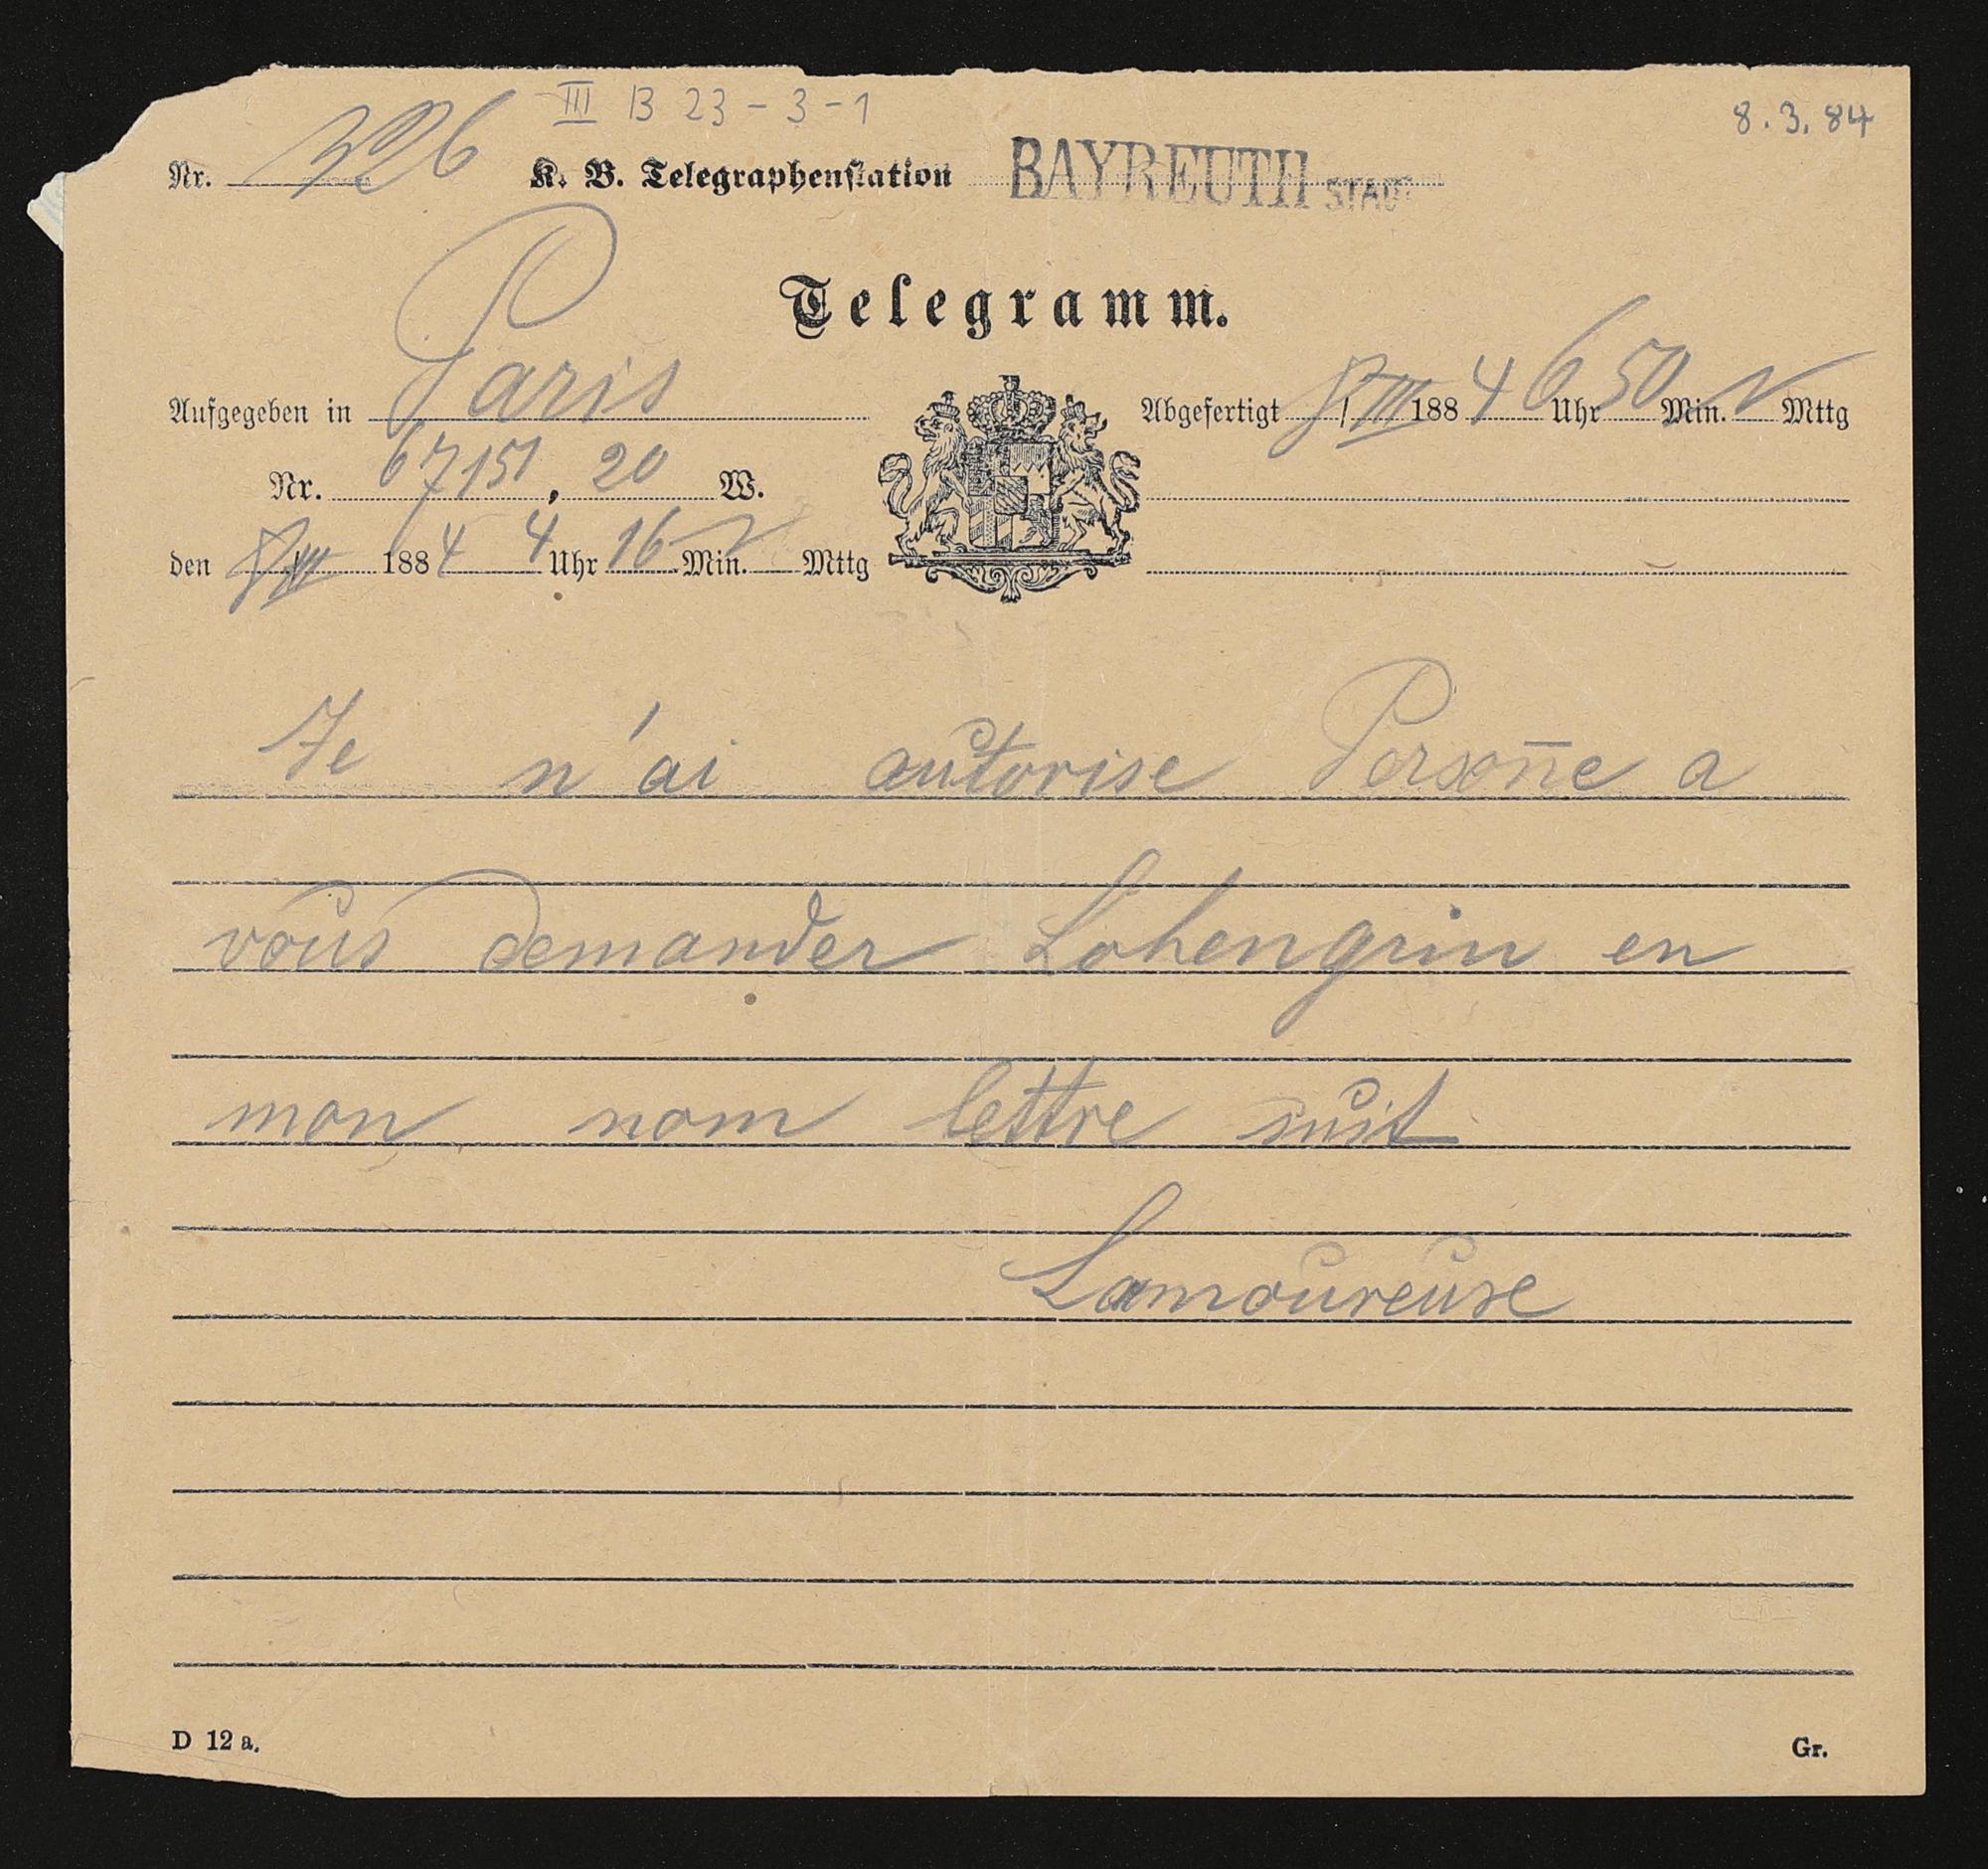 III B 23 - 3 - 1
8.3.84
Nr. 326 K. B. Telegraphenstation BAYREUTH STADT
Telegramm.
Aufgegeben in Paris
Abgefertigt 8/III 1884 6 Uhr 50 Min. N Mttg
Nr. 67151, 20 W.
den 8/III 1884 4 Uhr 16 Min. N Mttg
Je n'ai autorise Person̄e a
vous demander Lohengrin en
mon nom lettre suit
Lamoureuse
D 12 a.
Gr.